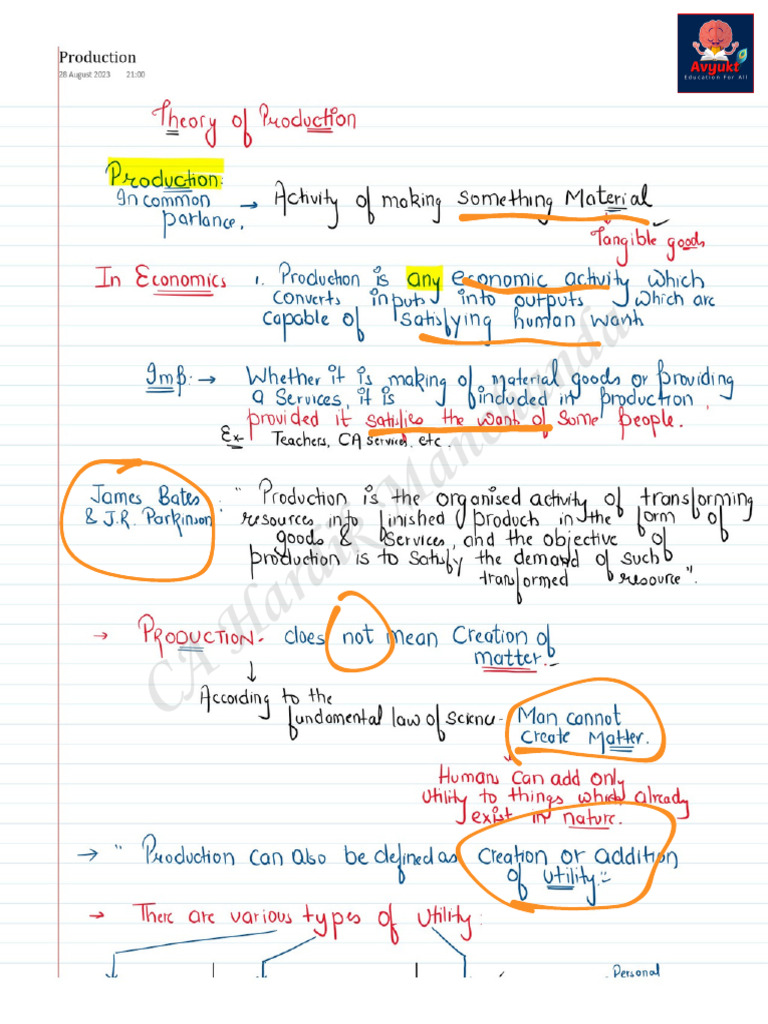 Production
28 August 2023 21:00
Avyukt
Education For All
Theory of Production
Production:
In common → Activity of making something Material
parlance.
Tangible goods
In Economics 1. Production is any economic activity which
converts inputs into outputs which are
capable of satisfying human want
Imp: → Whether it is making of Material goods or providing
a Services, it is included in production,
provided it satisfies the want of some people.
Ex- Teachers, CA services, etc.
James Bates : " Production is the organised activity of transforming
& J.R. Parkinson resources into finished product in the form of
goods & services, and the objective of
production is to satisfy the demand of such
transformed resource".
→ PRODUCTION- does not mean Creation of
matter.
↓
According to the
fundamental law of science - Man cannot
create Matter.
Humans can add only
utility to things which already
exist in nature.
→ " Production can also be defined as creation or addition
of utility."
→ There are various types of Utility:
Personal
CA Hardik Manchanda